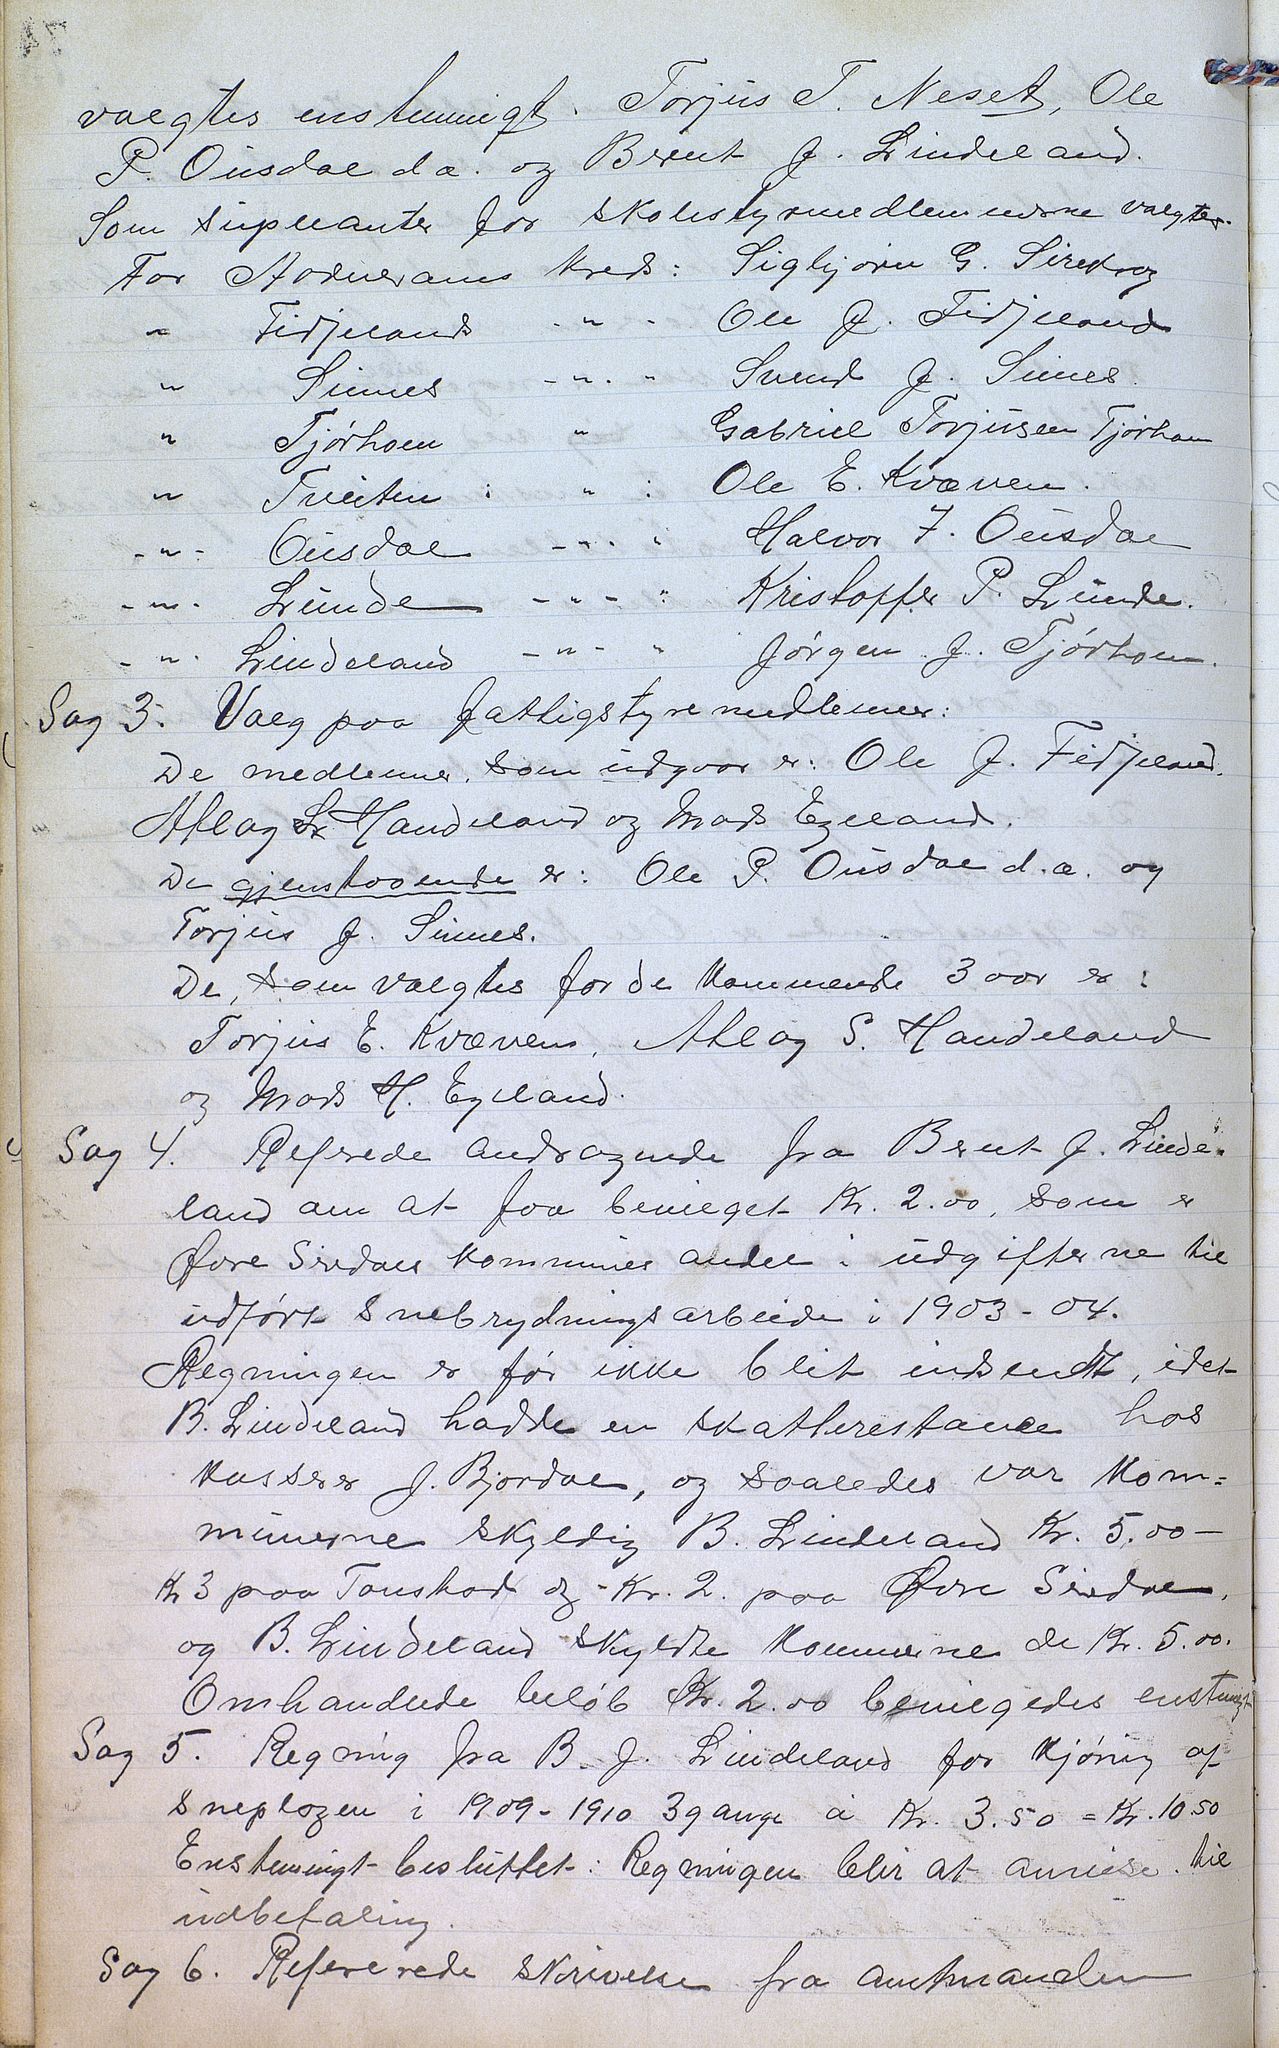 valgtes enstemmigt. Torjus T. Neset, Ole
P. Ousdal d.æ. og Bernt J. Lindeland.
Som supleanter for skolestyrmedlemmerne valgtes.
For Hodnerams kreds: Sigbjørn G. Sirekrog
" Fidjelands -"- Ole J. Fidjeland
" Sinnes -"- " Svend J. Sinnes.
" Tjørhom " Gabriel Torjusen Tjørhom
" Tveiten : " : Ole E. Kvæven.
-"- Ousdal -"- " Halvor T. Ousdal
-"- Lunde -"- " Kristoffer P. Lunde.
-"- Lindeland -"- " Jørgen J. Tjørhom.
Sag 3. Valg paa fattigstyremedlemer:
De medlemmer, som udgaar er: Ole J. Fidjeland,
Atlag S. Handeland og Mads Eyeland.
De gjenstaaende er: Ole P. Ousdal d.æ. og
Torjus J. Sinnes.
De, som valgtes for de kommende 3 aar er:
Torjus E. Kvæven, Atlag S. Handeland
og Mads H. Eyeland.
Sag 4. Refrede andragende fra Bernt J. Linde-
land om at faa bevilget Kr. 2.00, som er
Øvre Sirdals kommunes andel i udgifterne til
udført snebrydningsarbeide i 1903-04.
Regningen er før ikke blit indsendt, idet
B. Lindeland hadde en skatterestance hos
kasserer J. Bjordal, og saaledes var kom=
munerne skyldig B. Lindeland Kr. 5.00 -
Kr 3 paa Tonstad og Kr. 2. paa Øvre Sirdal,
og B. Lindeland skyldte kommunerne de Kr. 5.00.
Omhandlede beløb Kr. 2.00 bevilgedes enstemigt
Sag 5. Regning fra B. J. Lindeland for kjøring af
sneplogen i 1909-1910 3 gange a Kr. 3.50 = Kr. 10.50
Enstemmigt besluttet: Regningen blir at anvise til
udbetaling.
Sag 6. Refererede skrivelse fra amtmanden